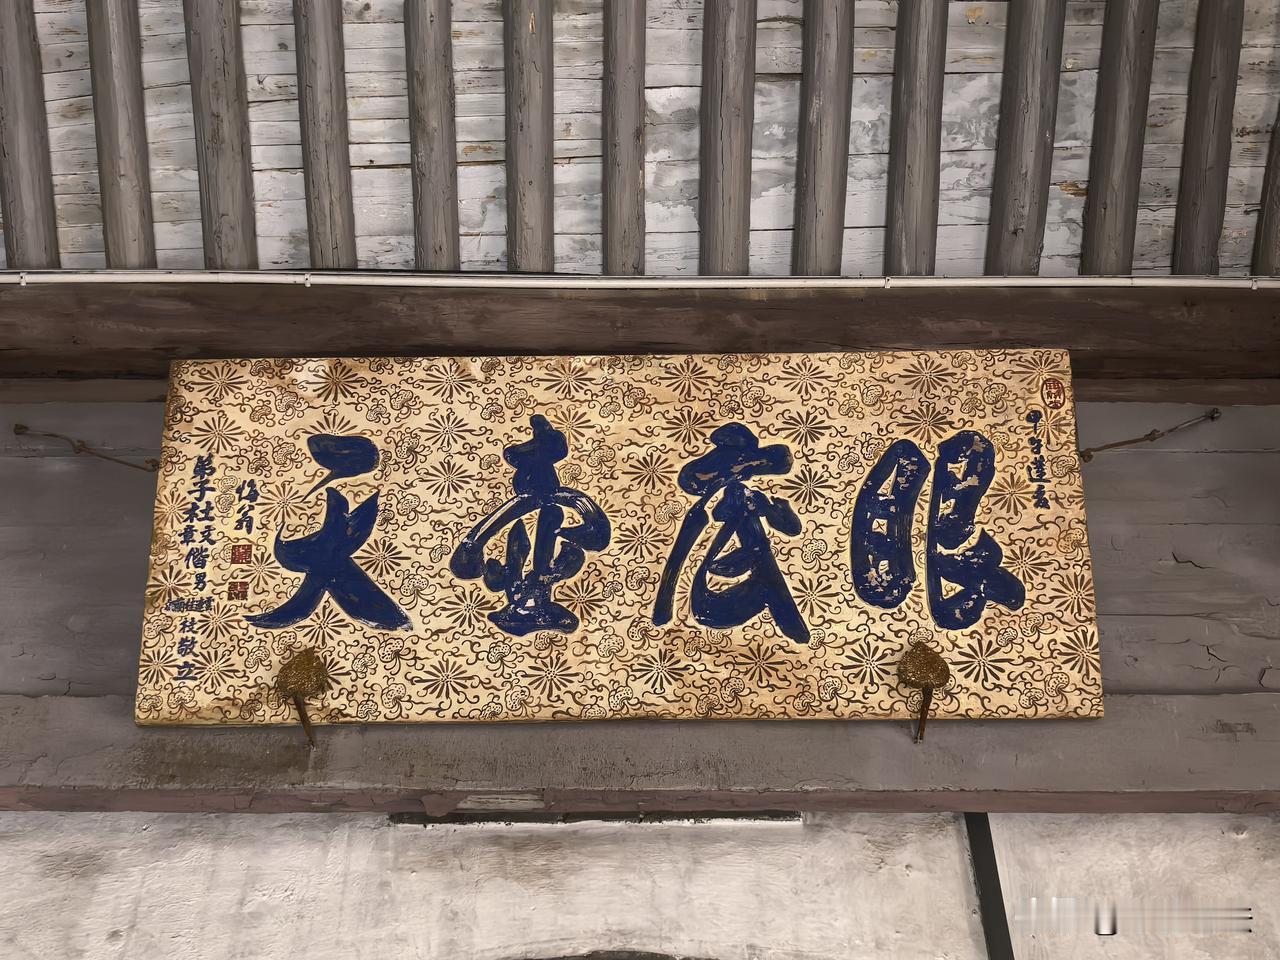 甲子建辰
眼底壺天
悔翁
弟子杜天章偕男
徒敬立